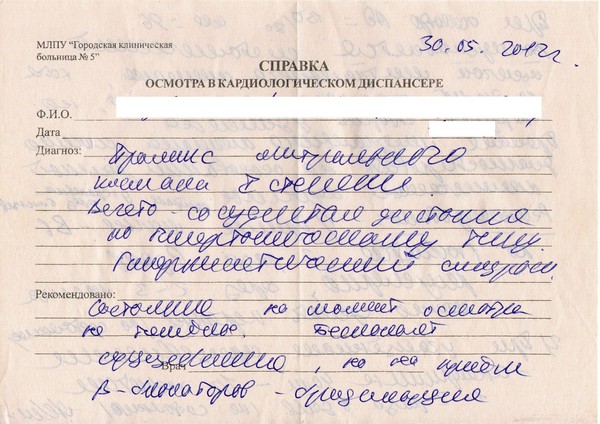 МЛПУ "Городская клиническая
больница № 5"
30.05.2012г.
СПРАВКА
ОСМОТРА В КАРДИОЛОГИЧЕСКОМ ДИСПАНСЕРЕ
Ф.И.О.
Дата
Диагноз: Пролапс митрального
клапана I степени.
Вегето-сосудистая дистония
по гипертоническому типу.
Гиперкинетический синдром.
Рекомендовано: Состояние на момент осмотра
Беспокоят
Врач
, но на приём
β-блокаторов - брадикардия